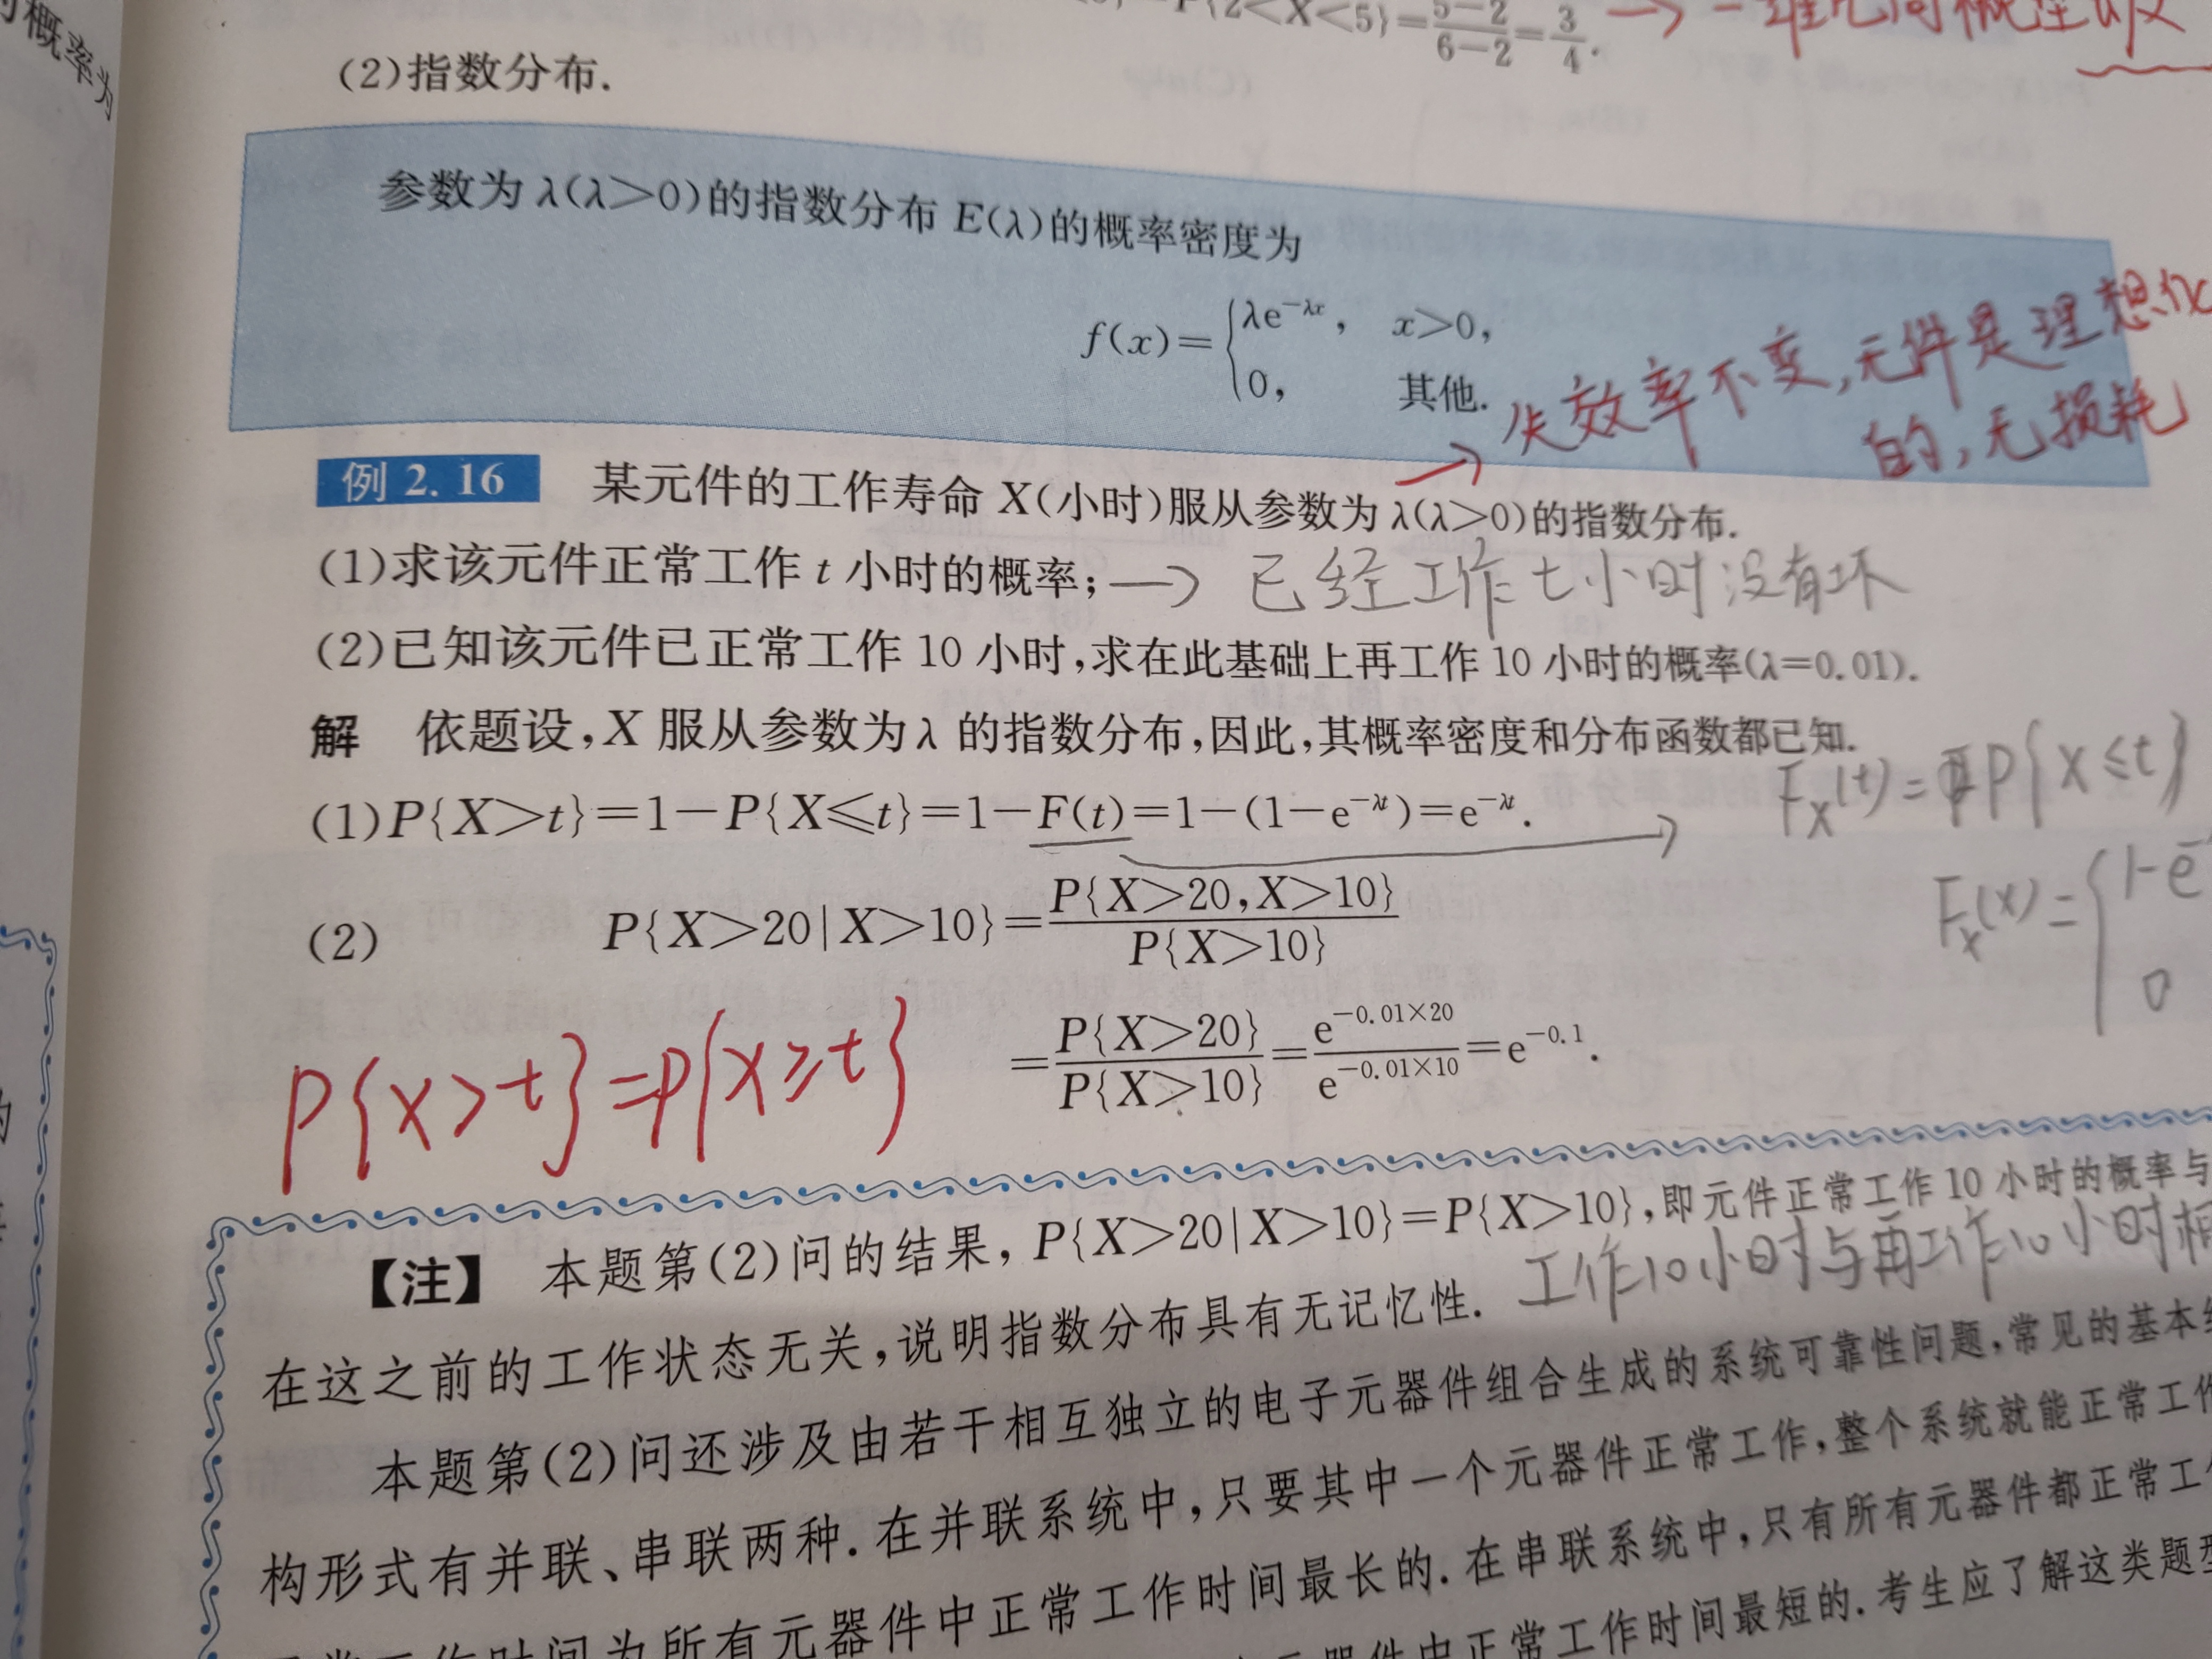 的概率为
P{2<X<5}=\frac{5-2}{6-2}=\frac{3}{4}. →
(2)指数分布.
参数为 λ(λ>0)的指数分布 E(λ)的概率密度为
f(x)={λe^{-λx}, x>0,
0, 其他.
失效率不变,元件是理想化
的,无损耗
例 2.16 某元件的工作寿命 X(小时)服从参数为 λ(λ>0)的指数分布.
(1)求该元件正常工作 t 小时的概率; → 已经工作 t 小时没有坏
(2)已知该元件已正常工作 10 小时,求在此基础上再工作 10 小时的概率(λ=0.01).
解 依题设,X 服从参数为 λ 的指数分布,因此,其概率密度和分布函数都已知.
F_X(t)=P{X≤t}
(1)P{X>t}=1-P{X≤t}=1-F(t)=1-(1-e^{-λt})=e^{-λt}. →
F_X(x)={1-e^-
0
(2) P{X>20|X>10}=\frac{P{X>20,X>10}}{P{X>10}}
=\frac{P{X>20}}{P{X>10}}=\frac{e^{-0.01×20}}{e^{-0.01×10}}=e^{-0.1}.
P{X>t}=P{X≥t}
【注】 本题第(2)问的结果,P{X>20|X>10}=P{X>10},即元件正常工作 10 小时的概率与
工作10小时与再工作10小时
在这之前的工作状态无关,说明指数分布具有无记忆性.
本题第(2)问还涉及由若干相互独立的电子元器件组合生成的系统可靠性问题,常见的基本
构形式有并联、串联两种.在并联系统中,只要其中一个元器件正常工作,整个系统就能正常工作
工作时间为所有元器件中正常工作时间最长的.在串联系统中,只有所有元器件都正常工
器件中正常工作时间最短的.考生应了解这类题